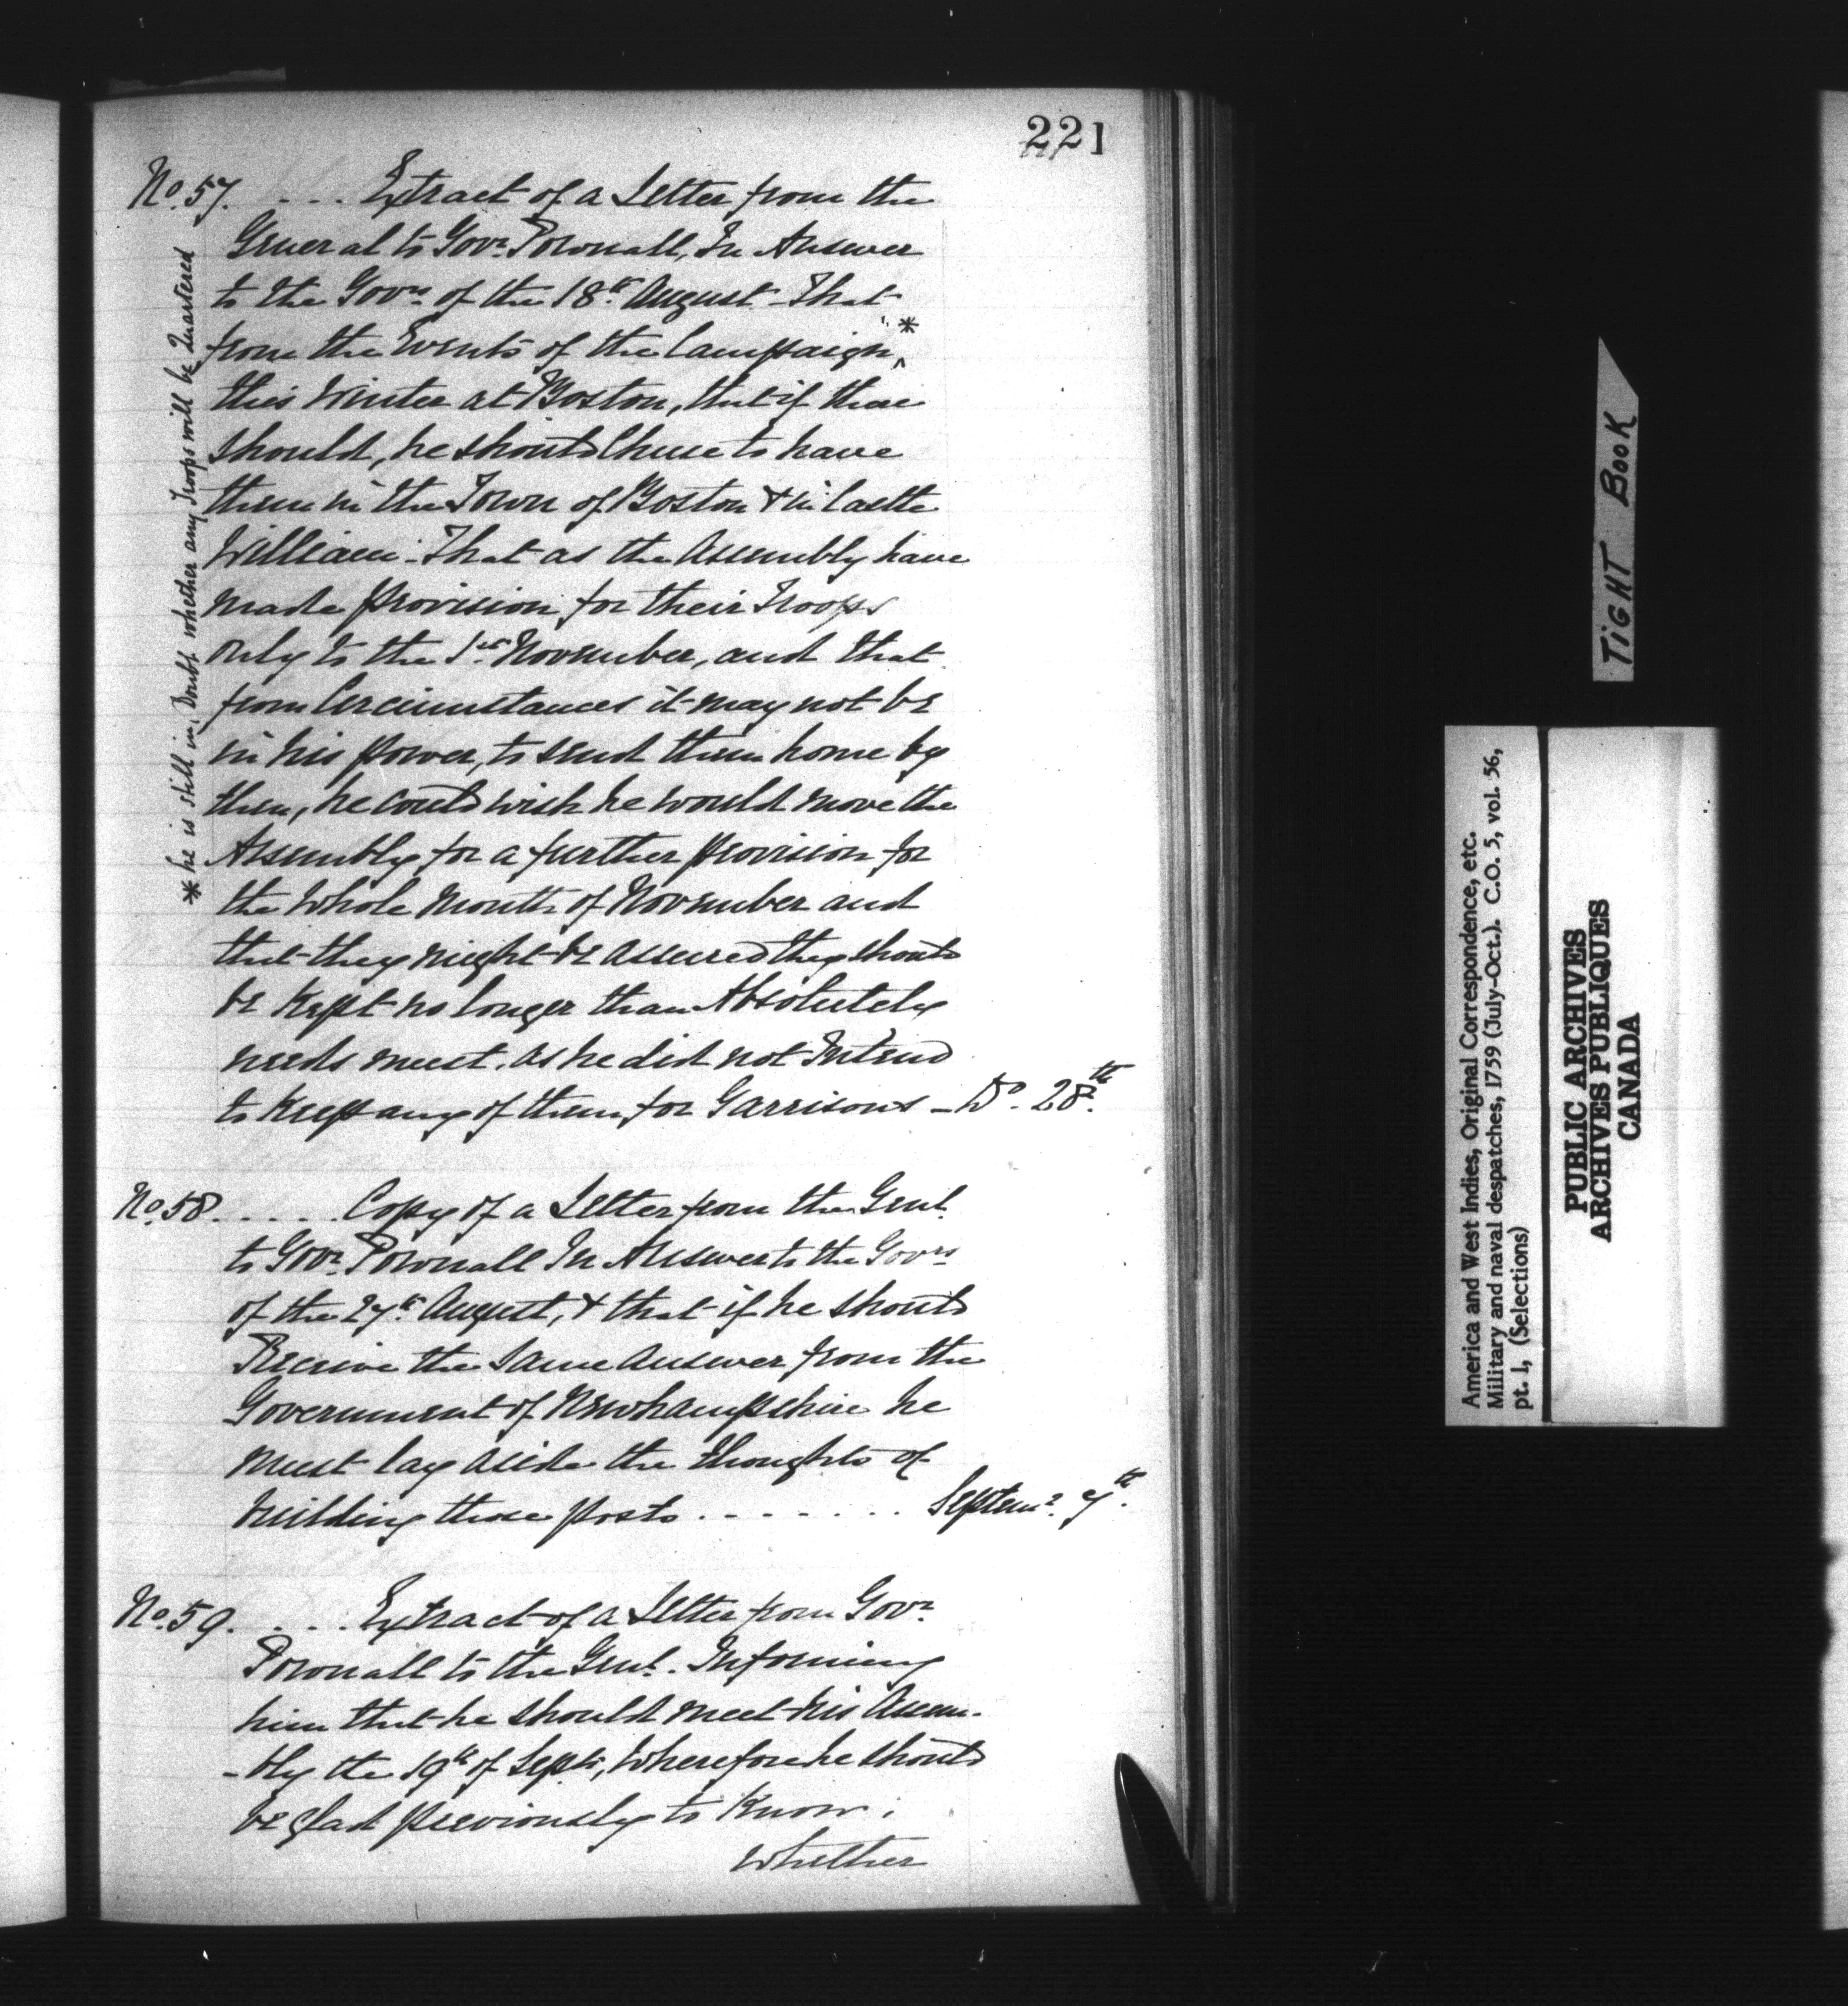 221
No. 57. . . . Extract of a Letter from the
General to Govr. Pownall, In Answer
to the Govrs. of the 18th. August - That
from the Events of the Campaign, *
this Winter at Boston, that if there
should, he should Chuse to have
them in the Town of Boston & in Castle
William. That as the Assembly have
made provision for their Troops
only to the 1st November, and that
from Circumstances it may not be
in his power, to send them home by
then, he could wish he would move the
Assembly for a further provision for
the whole month of November and
that they might be assured they should
be kept no longer than Absolutely
needs must. as he did not Intend
to keep any of them for Garrisons - Do. 28th.
* he is still in Doubt whether any Troops will be Quartered
No. 58. . . . . . Copy of a Letter from the Genl.
to Govr. Pownall In Answer to the Govrs
of the 27th. August, & that if he should
Receive the Same Answer from the
Government of Newhampshire he
must lay aside the thoughts of
building those posts . . . . . . . Septemr. 7th.
No. 59. . . . . Extract of a Letter from Govr.
Pownall to the Genl. Informing
him that he should meet his Assem-
-bly the 19th of Septr, Wherefore he should
be glad previously to Know.
Whether
TIGHT BOOK
America and West Indies, Original Correspondence, etc.
Military and naval despatches, 1759 (July-Oct.). C.O. 5, vol. 56,
pt. 1, (Selections)
PUBLIC ARCHIVES
ARCHIVES PUBLIQUES
CANADA